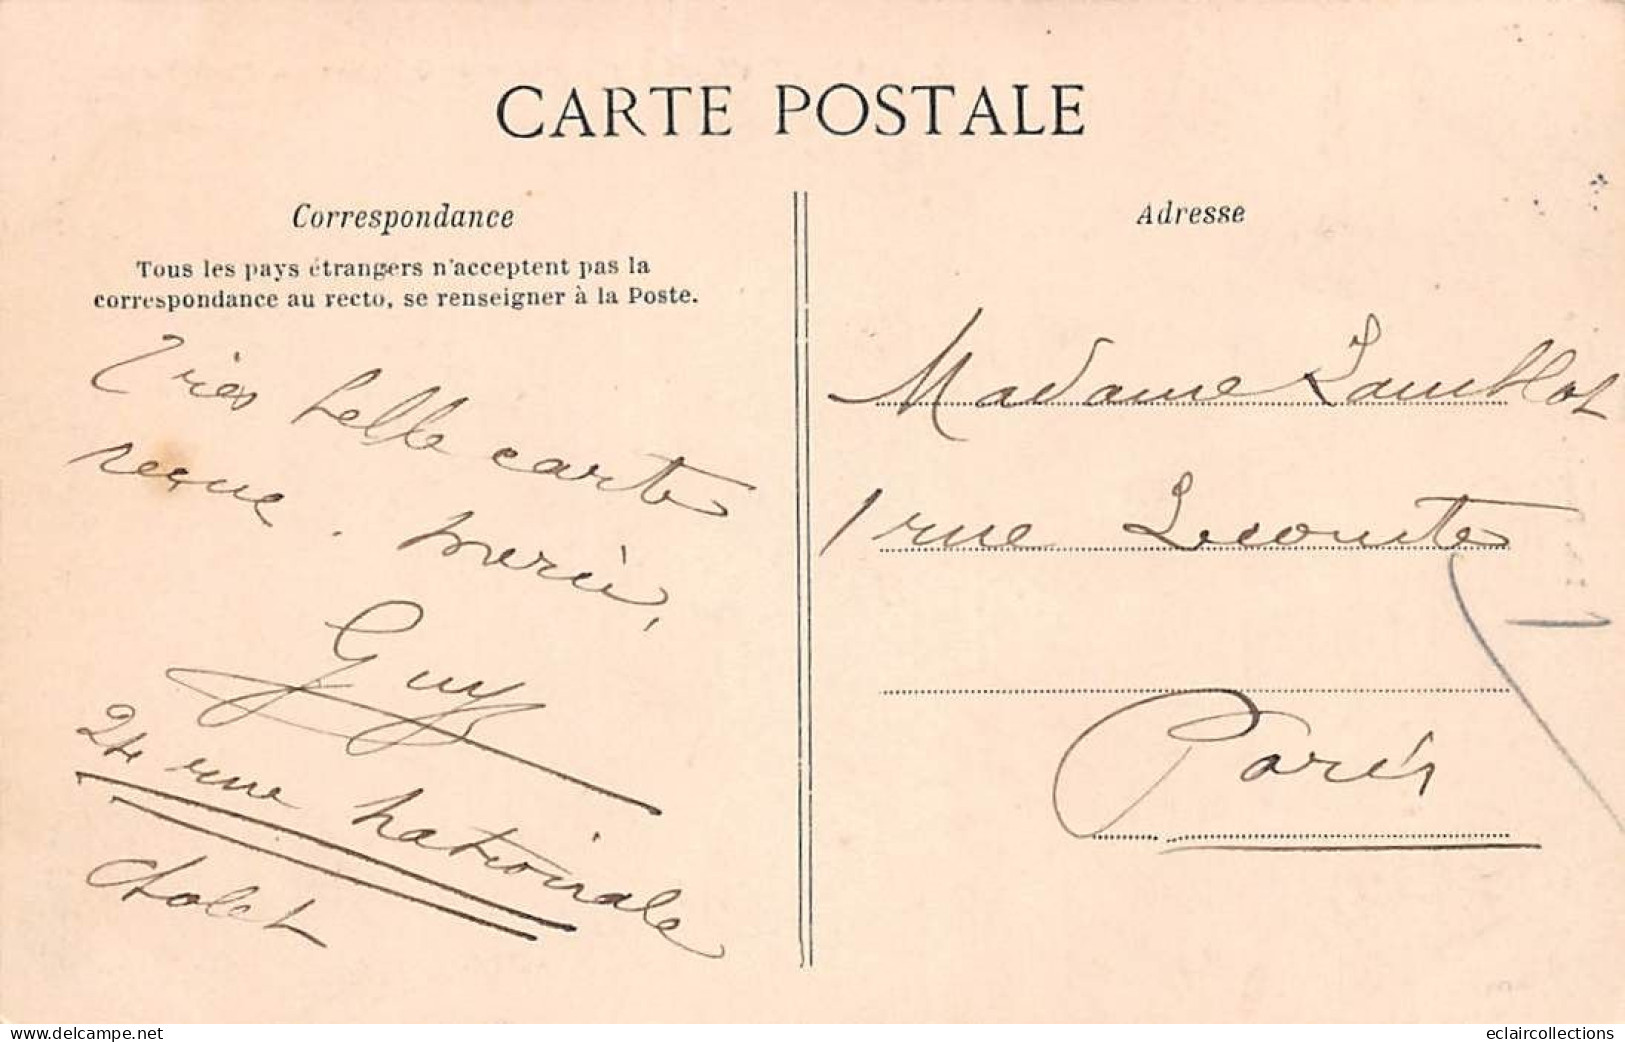 CARTE POSTALE
Correspondance
Tous les pays étrangers n'acceptent pas la
correspondance au recto, se renseigner à la Poste.
Très belle carte
reçue. merci,
Guy
24 rue nationale
Cholet
Adresse
Madame Lamblot
1 rue Lecomte
Paris
eclaircollections